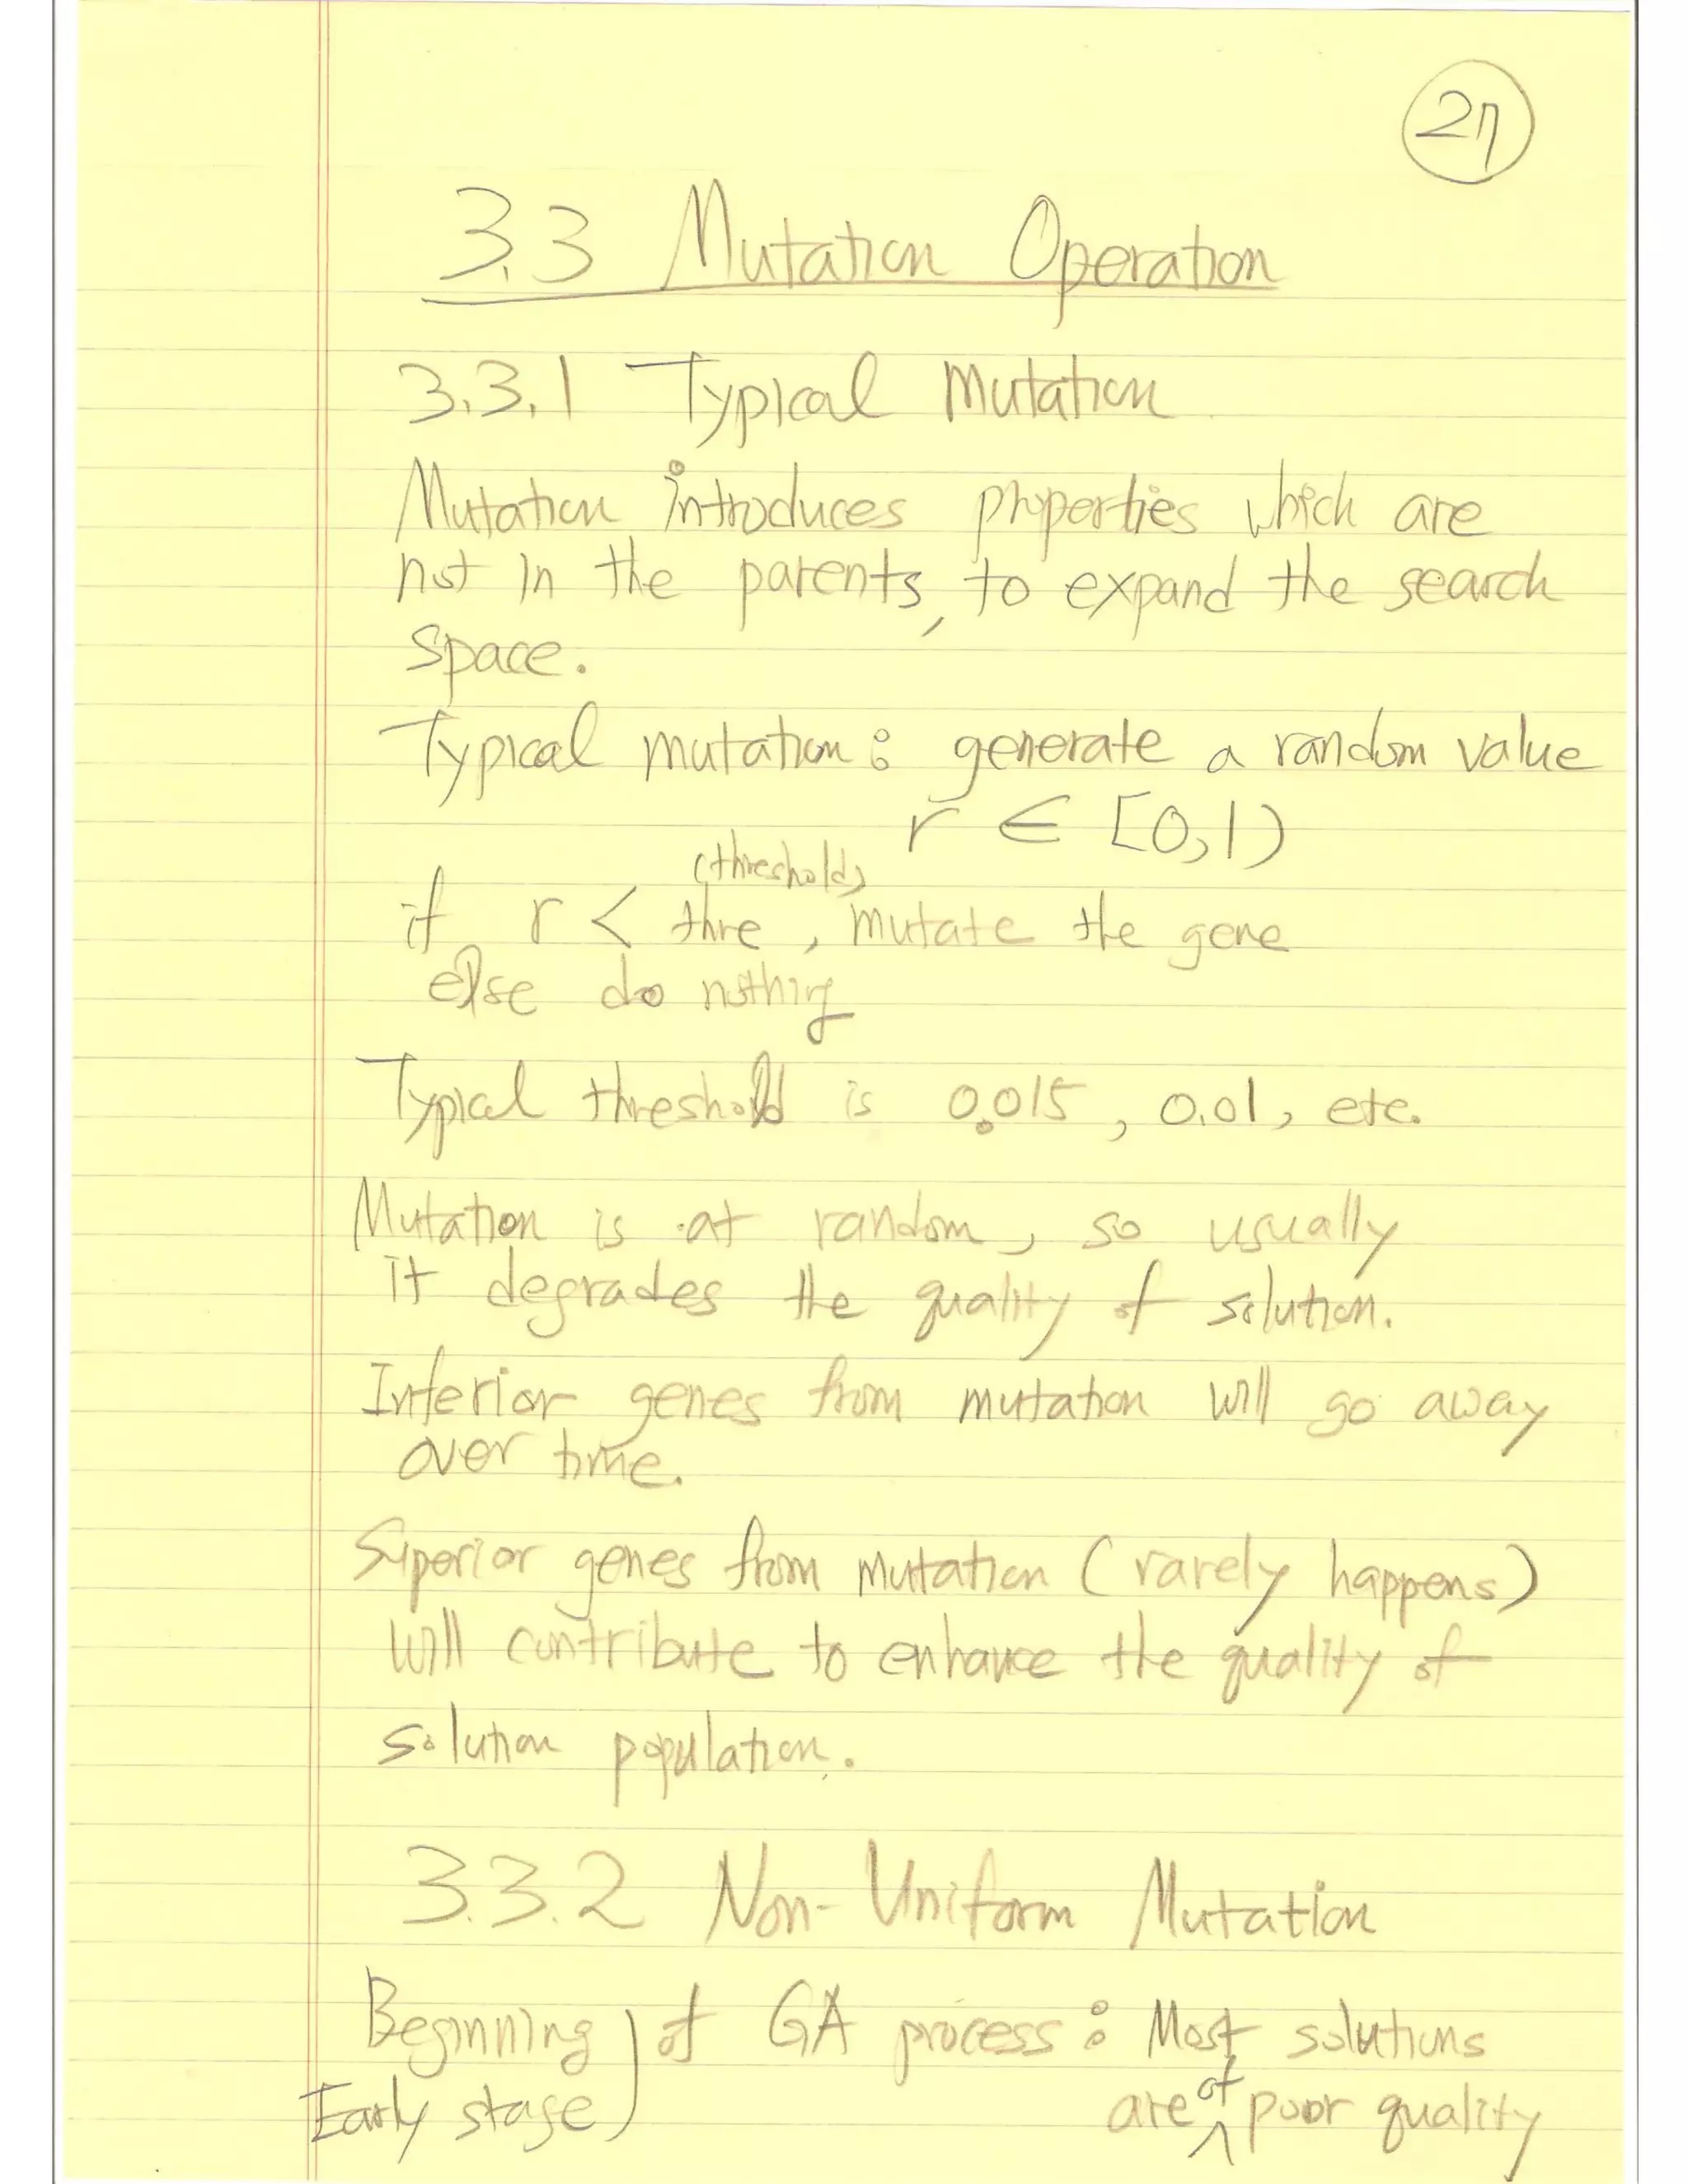 27
3.3 Mutation Operation
3.3.1 Typical Mutation
Mutation introduces properties which are
not in the parents, to expand the search
space.
Typical mutation: generate a random value
r ∈ [0,1)
(threshold)
if r < thre, mutate the gene
else do nothing
Typical threshold is 0.015, 0.01, etc.
Mutation is at random, so usually
it degrades the quality of solution.
Inferior genes from mutation will go away
over time.
Superior genes from mutation (rarely happens)
will contribute to enhance the quality of
solution population.
3.3.2 Non-Uniform Mutation
Beginning ) of GA process: Most solutions
Early stage ) are of poor quality